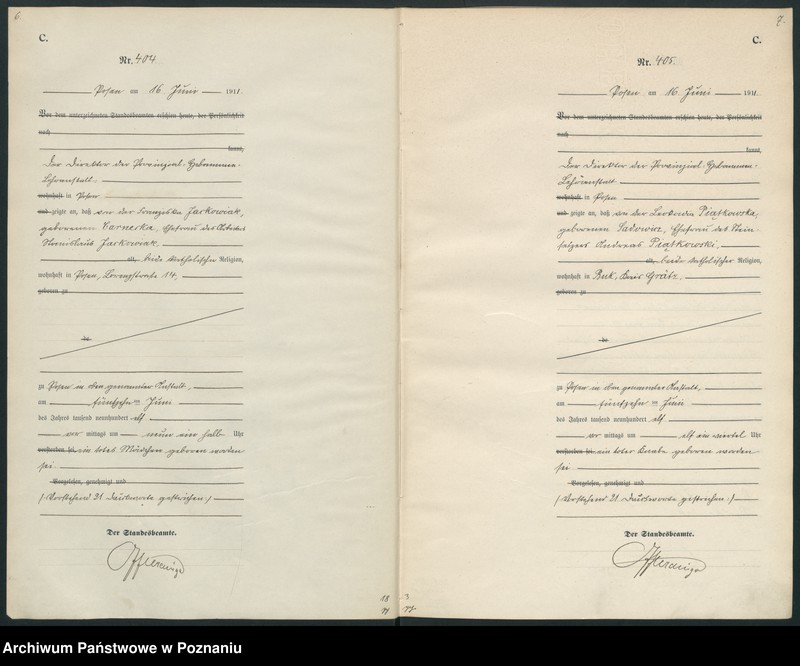 6.
C.
Nr. 404.
Posen am 16. Juni 1911.
Vor dem unterzeichneten Standesbeamten erschien heute, der Persönlichkeit
nach
kannt,
Der Direktor der Provinzial-Hebammen-
Lehranstalt.
wohnhaft in Posen
und zeigte an, daß von der Franziska Jarkowiak,
geborenen Czarnecka, Ehefrau des
Stanislaus Jarkowiak.
alt, beide katholischer Religion,
wohnhaft in Posen, 14,
geboren zu
de
zu Posen in der genannten Anstalt,
am fünfzehn ten Juni
des Jahres tausend neunhundert elf
vor mittags um neun ein halb Uhr
verstorben sei. ein totes Mädchen geboren worden
sei.
Vorgelesen, genehmigt und
(Vorstehend 21 Druckworte gestrichen.)
Der Standesbeamte.
18
7.
C.
Nr. 405.
Posen am 16. Juni 1911.
Vor dem unterzeichneten Standesbeamten erschien heute, der Persönlichkeit
nach
kannt,
Der Direktor der Provinzial-Hebammen-
Lehranstalt.
wohnhaft in Posen
und zeigte an, daß von der Leokadia Piątkowska,
geborenen Sadowicz, Ehefrau des Stein-
setzers Andreas Piątkowski.
alt, beide katholischer Religion,
wohnhaft in Buk, Kreis Grätz.
geboren zu
de
zu Posen in der genannten Anstalt,
am fünfzehn ten Juni
des Jahres tausend neunhundert elf
vor mittags um elf ein viertel Uhr
verstorben sei. ein toter Knabe geboren worden
sei.
Vorgelesen, genehmigt und
(Vorstehend 21 Druckworte gestrichen.)
Der Standesbeamte.
Archiwum Państwowe w Poznaniu